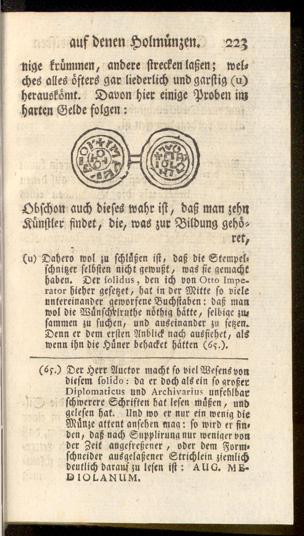 auf denen Holmünzen. 223
nige krümmen, andere strecken laßen; wel-
ches alles öfters gar liederlich und garstig (u)
herauskömt. Davon hier einige Proben im
harten Gelde folgen:
Obschon auch dieses wahr ist, daß man zehn
Künstler findet, die, was zur Bildung gehö-
ret,
(u) Dahero wol zu schlüßen ist, daß die Stempel-
schnitzer selbsten nicht gewußt, was sie gemacht
haben. Der solidus, den ich von Otto Impe-
rator hieher gesetzet, hat in der Mitte so viele
untereinander geworfene Buchstaben: daß man
wol die Wünschlruthe nöthig hätte, selbige zu-
sammen zu suchen, und auseinander zu setzen.
Denn er dem ersten Anblick nach aussiehet, als
wenn ihn die Hüner behacket hätten (65.).
(65.) Der Herr Auctor macht so viel Wesens von
diesem solido: da er doch als ein so großer
Diplomaticus und Archivarius unfehlbar
schwerere Schriften hat lesen müßen, und
gelesen hat. Und wo er nur ein wenig die
Münze attent ansehen mag: so wird er fin-
den, daß nach Supplirung nur weniger von
der Zeit angefreßener, oder dem Form-
schneider ausgelaßener Strichlein ziemlich
deutlich darauf zu lesen ist: AUG. ME-
DIOLANUM.